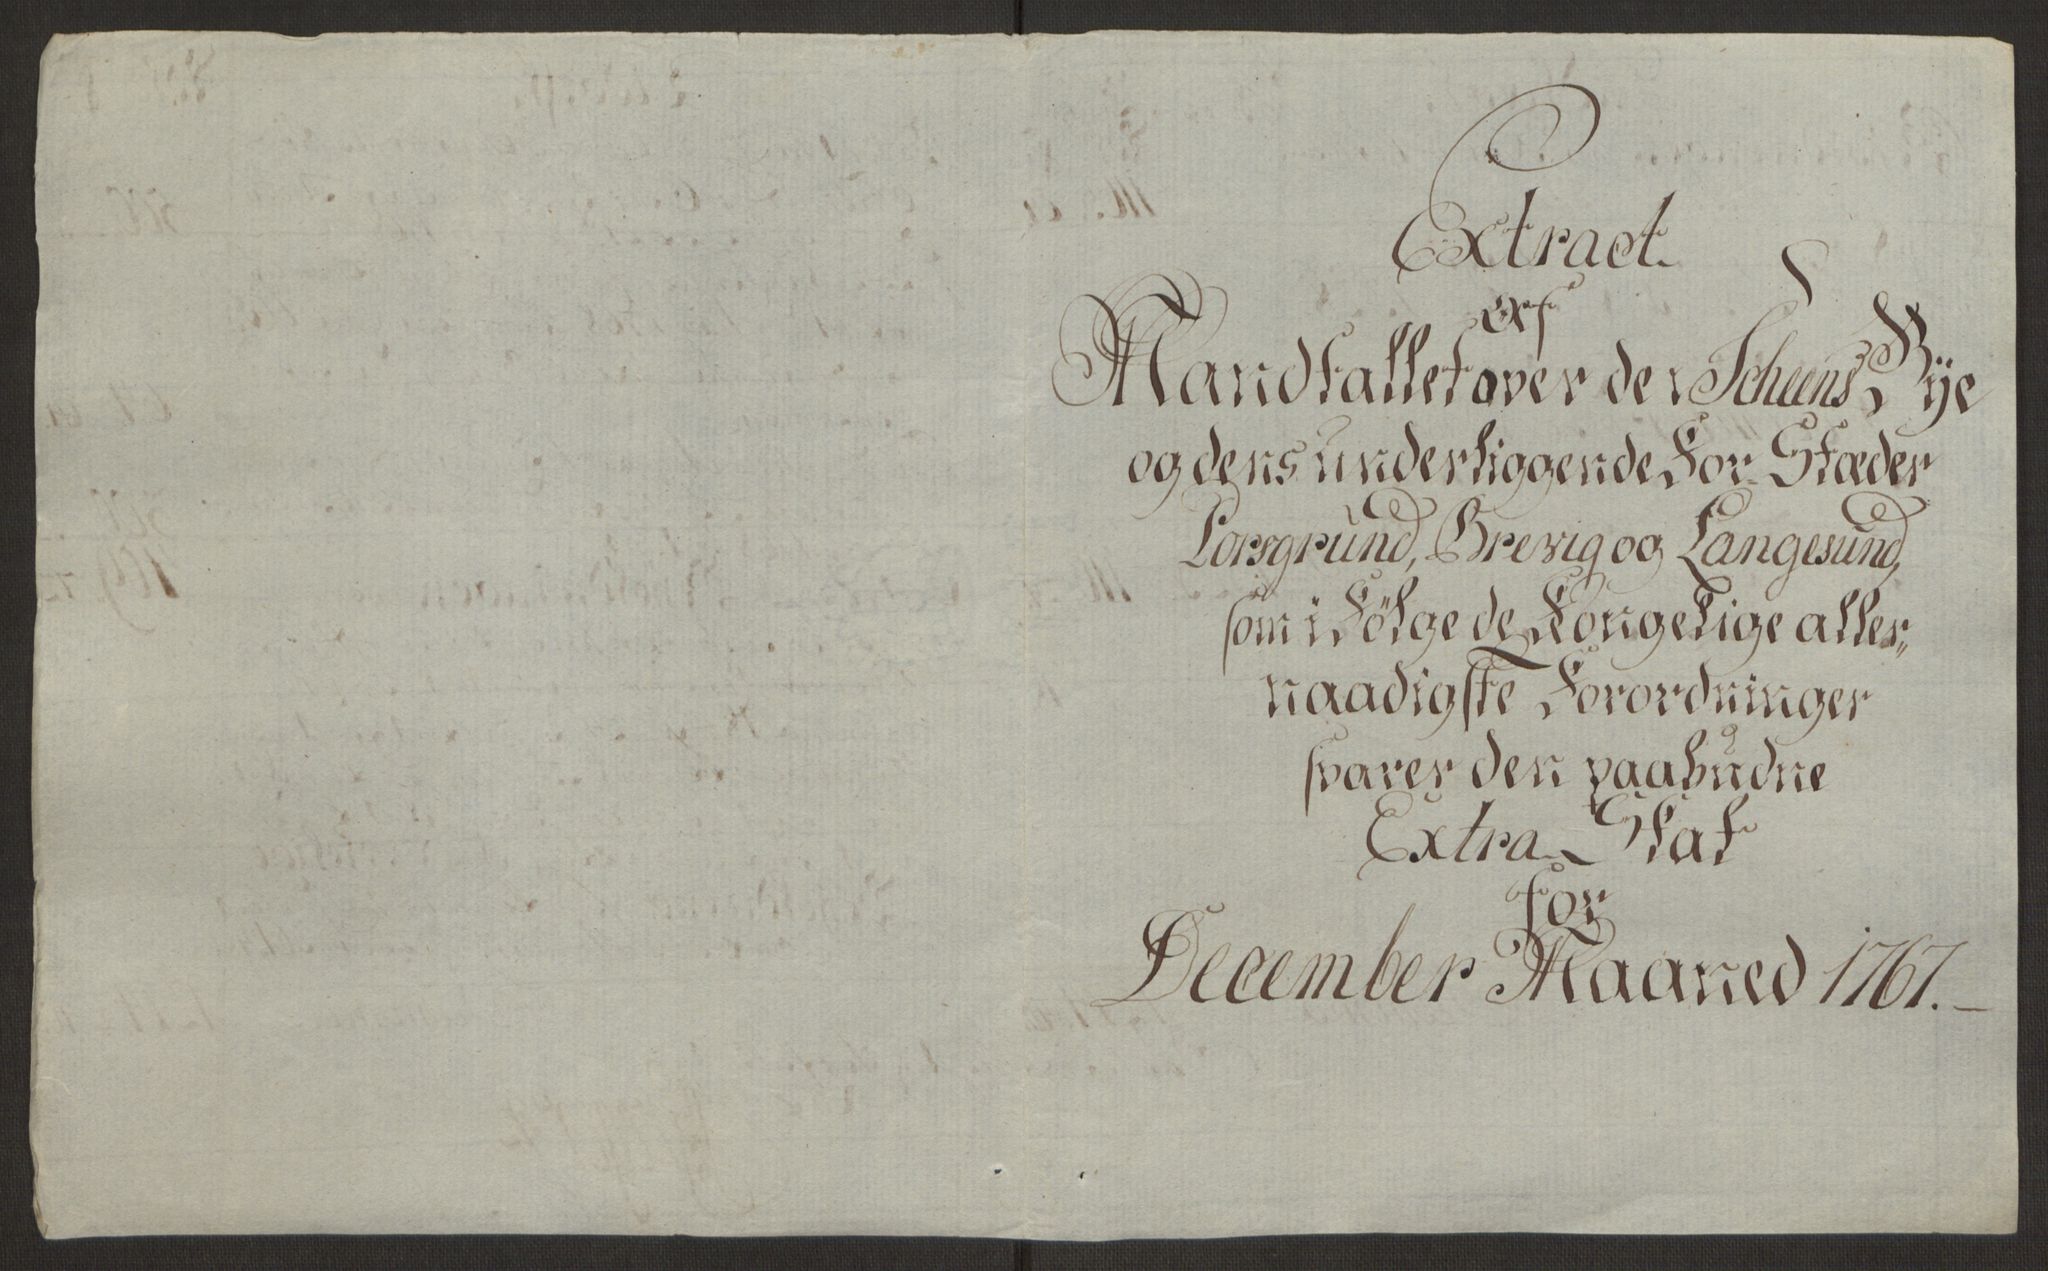 Extract
af
Mandtallet over de i Scheens Bÿe
og dens underliggende For-Stæder
Porsgrund, Brevig og Langesund,
som i Fölge de Kongelige aller„
naadigste Forordninger
svarer den paabudne
Extra-Skat
for
December Maaned 1767.